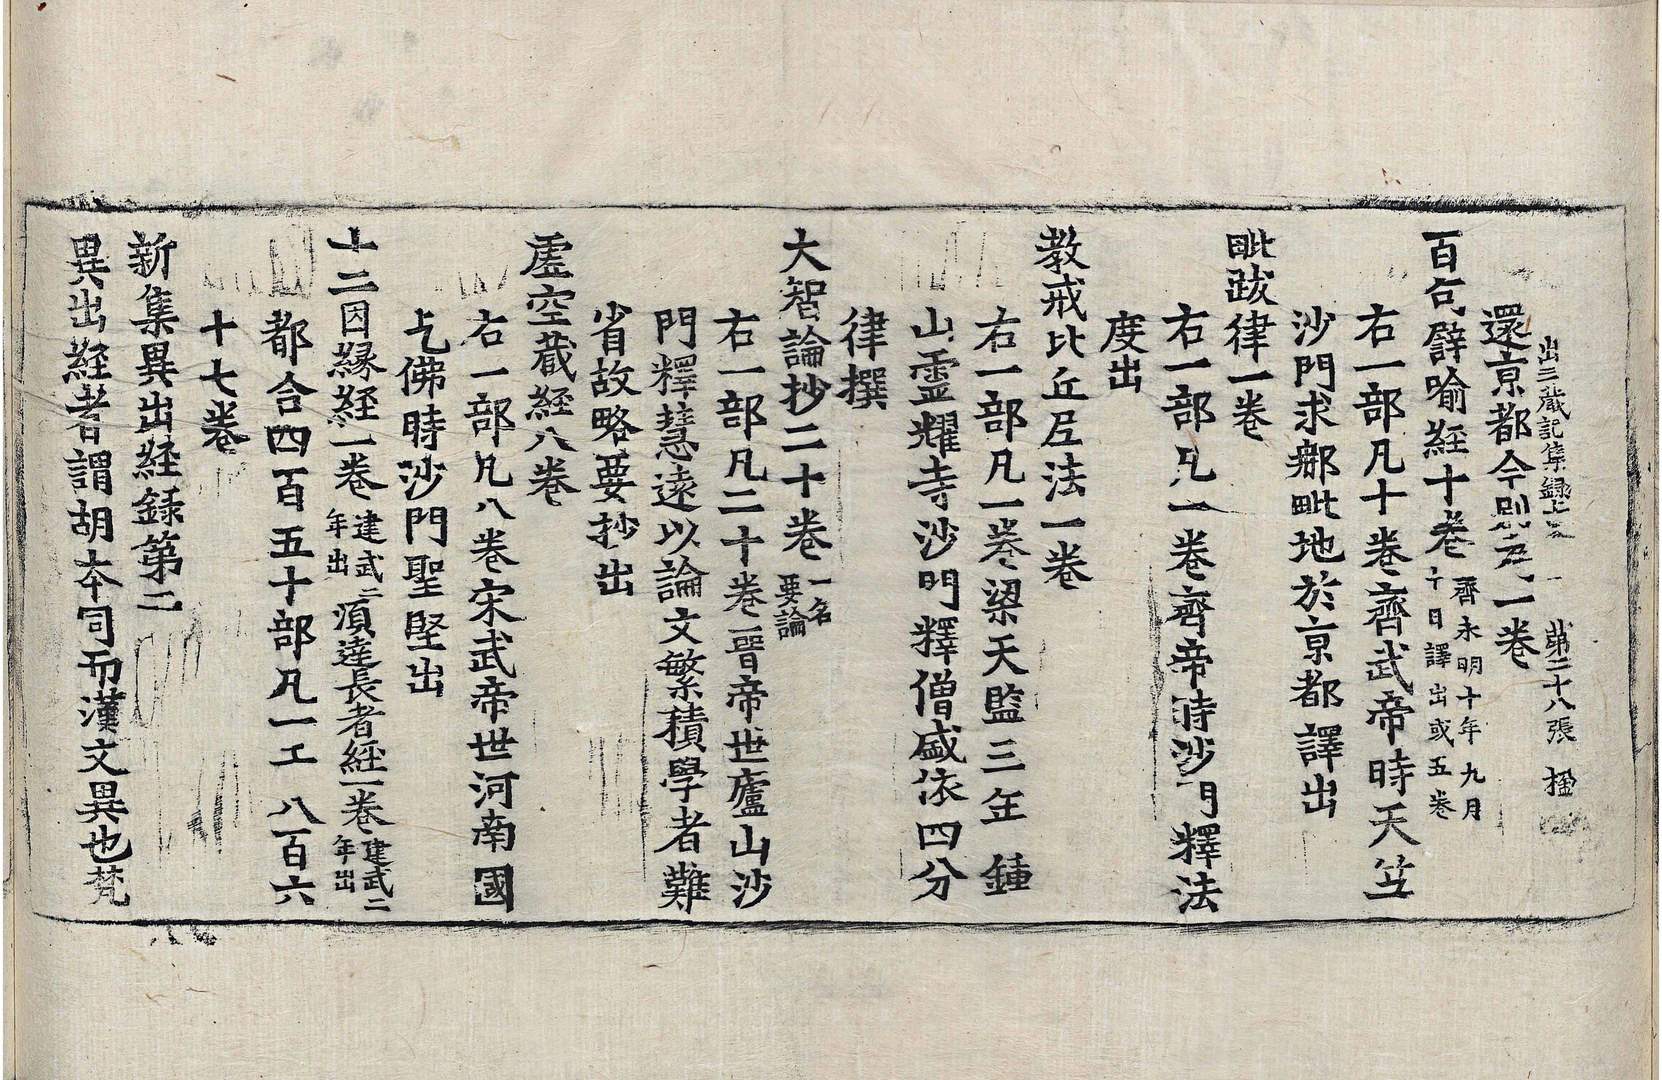 出三藏記集録上卷 一 第二十八張 楹
還京都今別爲一卷
百句譬喻経十卷 齊永明十年九月十日譯出或五卷
右一部凡十卷齊武帝時天竺
沙門求郍毗地於京都譯出
毗跋律一卷
右一部凡一卷齊帝時沙門釋法
度出
教戒比丘尼法一卷
右一部凡一卷梁天監三年鍾
山霊耀寺沙門釋僧盛依四分
律撰
大智論抄二十卷 一名要論
右一部凡二十卷晋帝世廬山沙
門釋慧遠以論文繁積學者難
省故略要抄出
虛空蔵経八卷
右一部凡八卷宋武帝世河南國
乞佛時沙門聖堅出
十二因縁経一卷 建武二年出 湏達長者経一卷 建武二年出
都合四百五十部凡一千八百六
十七卷
新集異出経録第二
異出経者謂胡本同而漢文異也梵